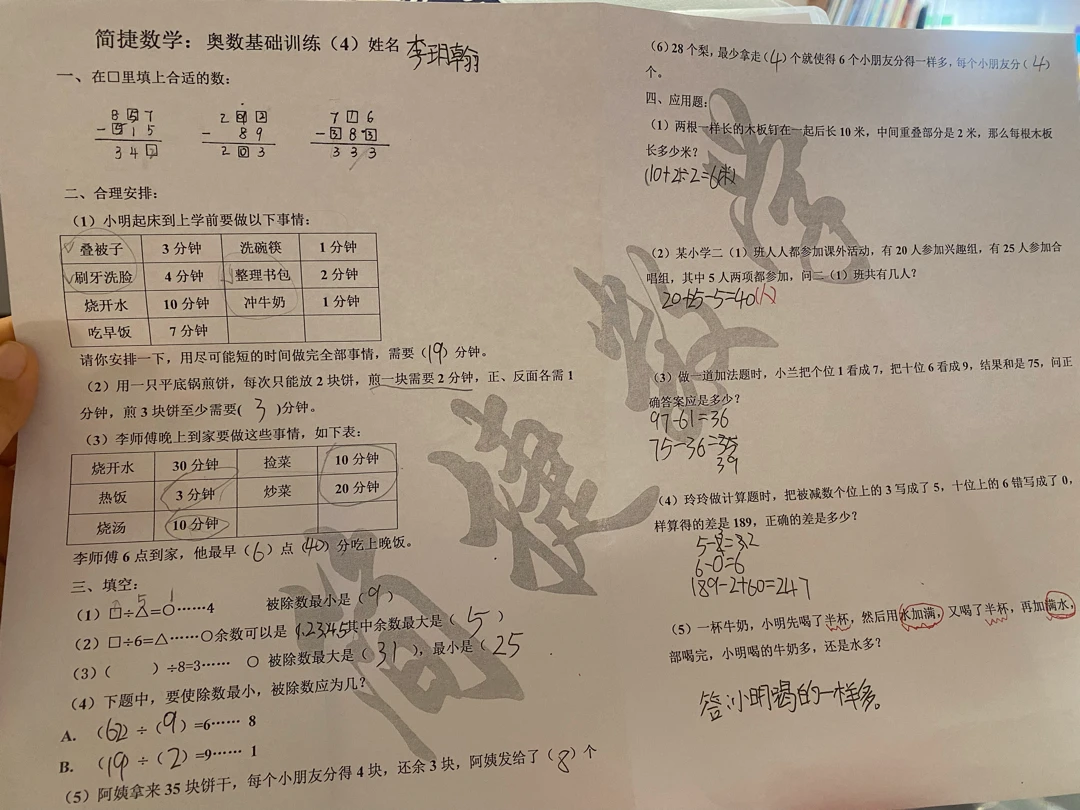 简捷数学：奥数基础训练（4）姓名 李玥翰
一、在□里填上合适的数：
8 5 7
－ 5 1 5
3 4 2
2 9 2
－ 8 9
2 0 3
7 1 6
－ 3 8 3
3 3 3
二、合理安排：
（1）小明起床到上学前要做以下事情：
叠被子 3 分钟 洗碗筷 1 分钟
刷牙洗脸 4 分钟 整理书包 2 分钟
烧开水 10 分钟 冲牛奶 1 分钟
吃早饭 7 分钟
请你安排一下，用尽可能短的时间做完全部事情，需要（19）分钟。
（2）用一只平底锅煎饼，每次只能放 2 块饼，煎一块需要 2 分钟，正、反面各需 1
分钟，煎 3 块饼至少需要( 3 )分钟。
（3）李师傅晚上到家要做这些事情，如下表：
烧开水 30 分钟 捡菜 10 分钟
热饭 3 分钟 炒菜 20 分钟
烧汤 10 分钟
李师傅 6 点到家，他最早（6）点（40）分吃上晚饭。
三、填空：
5 1
（1）□÷△=○……4 被除数最小是（9）
（2）□÷6=△……○余数可以是（1,2,3,4,5其中余数最大是（5）
（3）（ ）÷8=3…… ○ 被除数最大是（31），最小是（25
（4）下题中，要使除数最小，被除数应为几？
A. （62）÷（9）=6…… 8
B. （19）÷（2）=9…… 1
（5）阿姨拿来 35 块饼干，每个小朋友分得 4 块，还余 3 块，阿姨发给了（8）个
（6）28 个梨，最少拿走（4）个就使得 6 个小朋友分得一样多，每个小朋友分（4）
个。
四、应用题：
（1）两根一样长的木板钉在一起后长 10 米，中间重叠部分是 2 米，那么每根木板
长多少米？
(10+2÷2=6(米)
（2）某小学二（1）班人人都参加课外活动，有 20 人参加兴趣组，有 25 人参加合
唱组，其中 5 人两项都参加，问二（1）班共有几人？
20+25-5=40(人)
（3）做一道加法题时，小兰把个位 1 看成 7，把十位 6 看成 9，结果和是 75，问正
确答案应是多少？
97-61=36
75-36=
39
（4）玲玲做计算题时，把被减数个位上的 3 写成了 5，十位上的 6 错写成了 0，
样算得的差是 189，正确的差是多少？
6-0=6
189-2+60=247
（5）一杯牛奶，小明先喝了半杯，然后用水加满，又喝了半杯，再加满水，
部喝完，小明喝的牛奶多，还是水多？
答:小明喝的一样多。
简捷数学